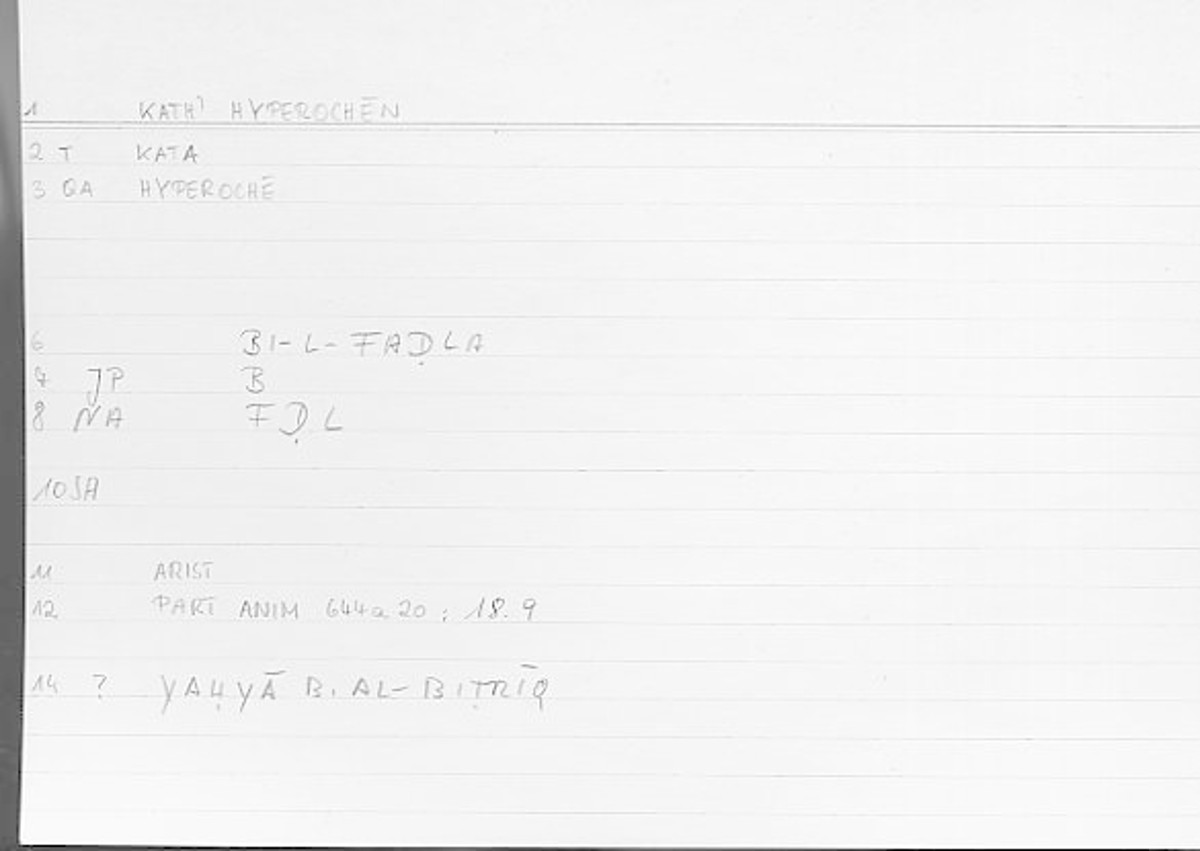 1 KATH' HYPEROCHĒN
2 T KATA
3 QA HYPEROCHĒ
6 BI-L-FAḌLA
7 JP B
8 NA FḌL
10 SA
11 ARIST
12 PART ANIM 644a20; 18.9
14 ? YAḤYĀ B. AL-BIṬRĪQ